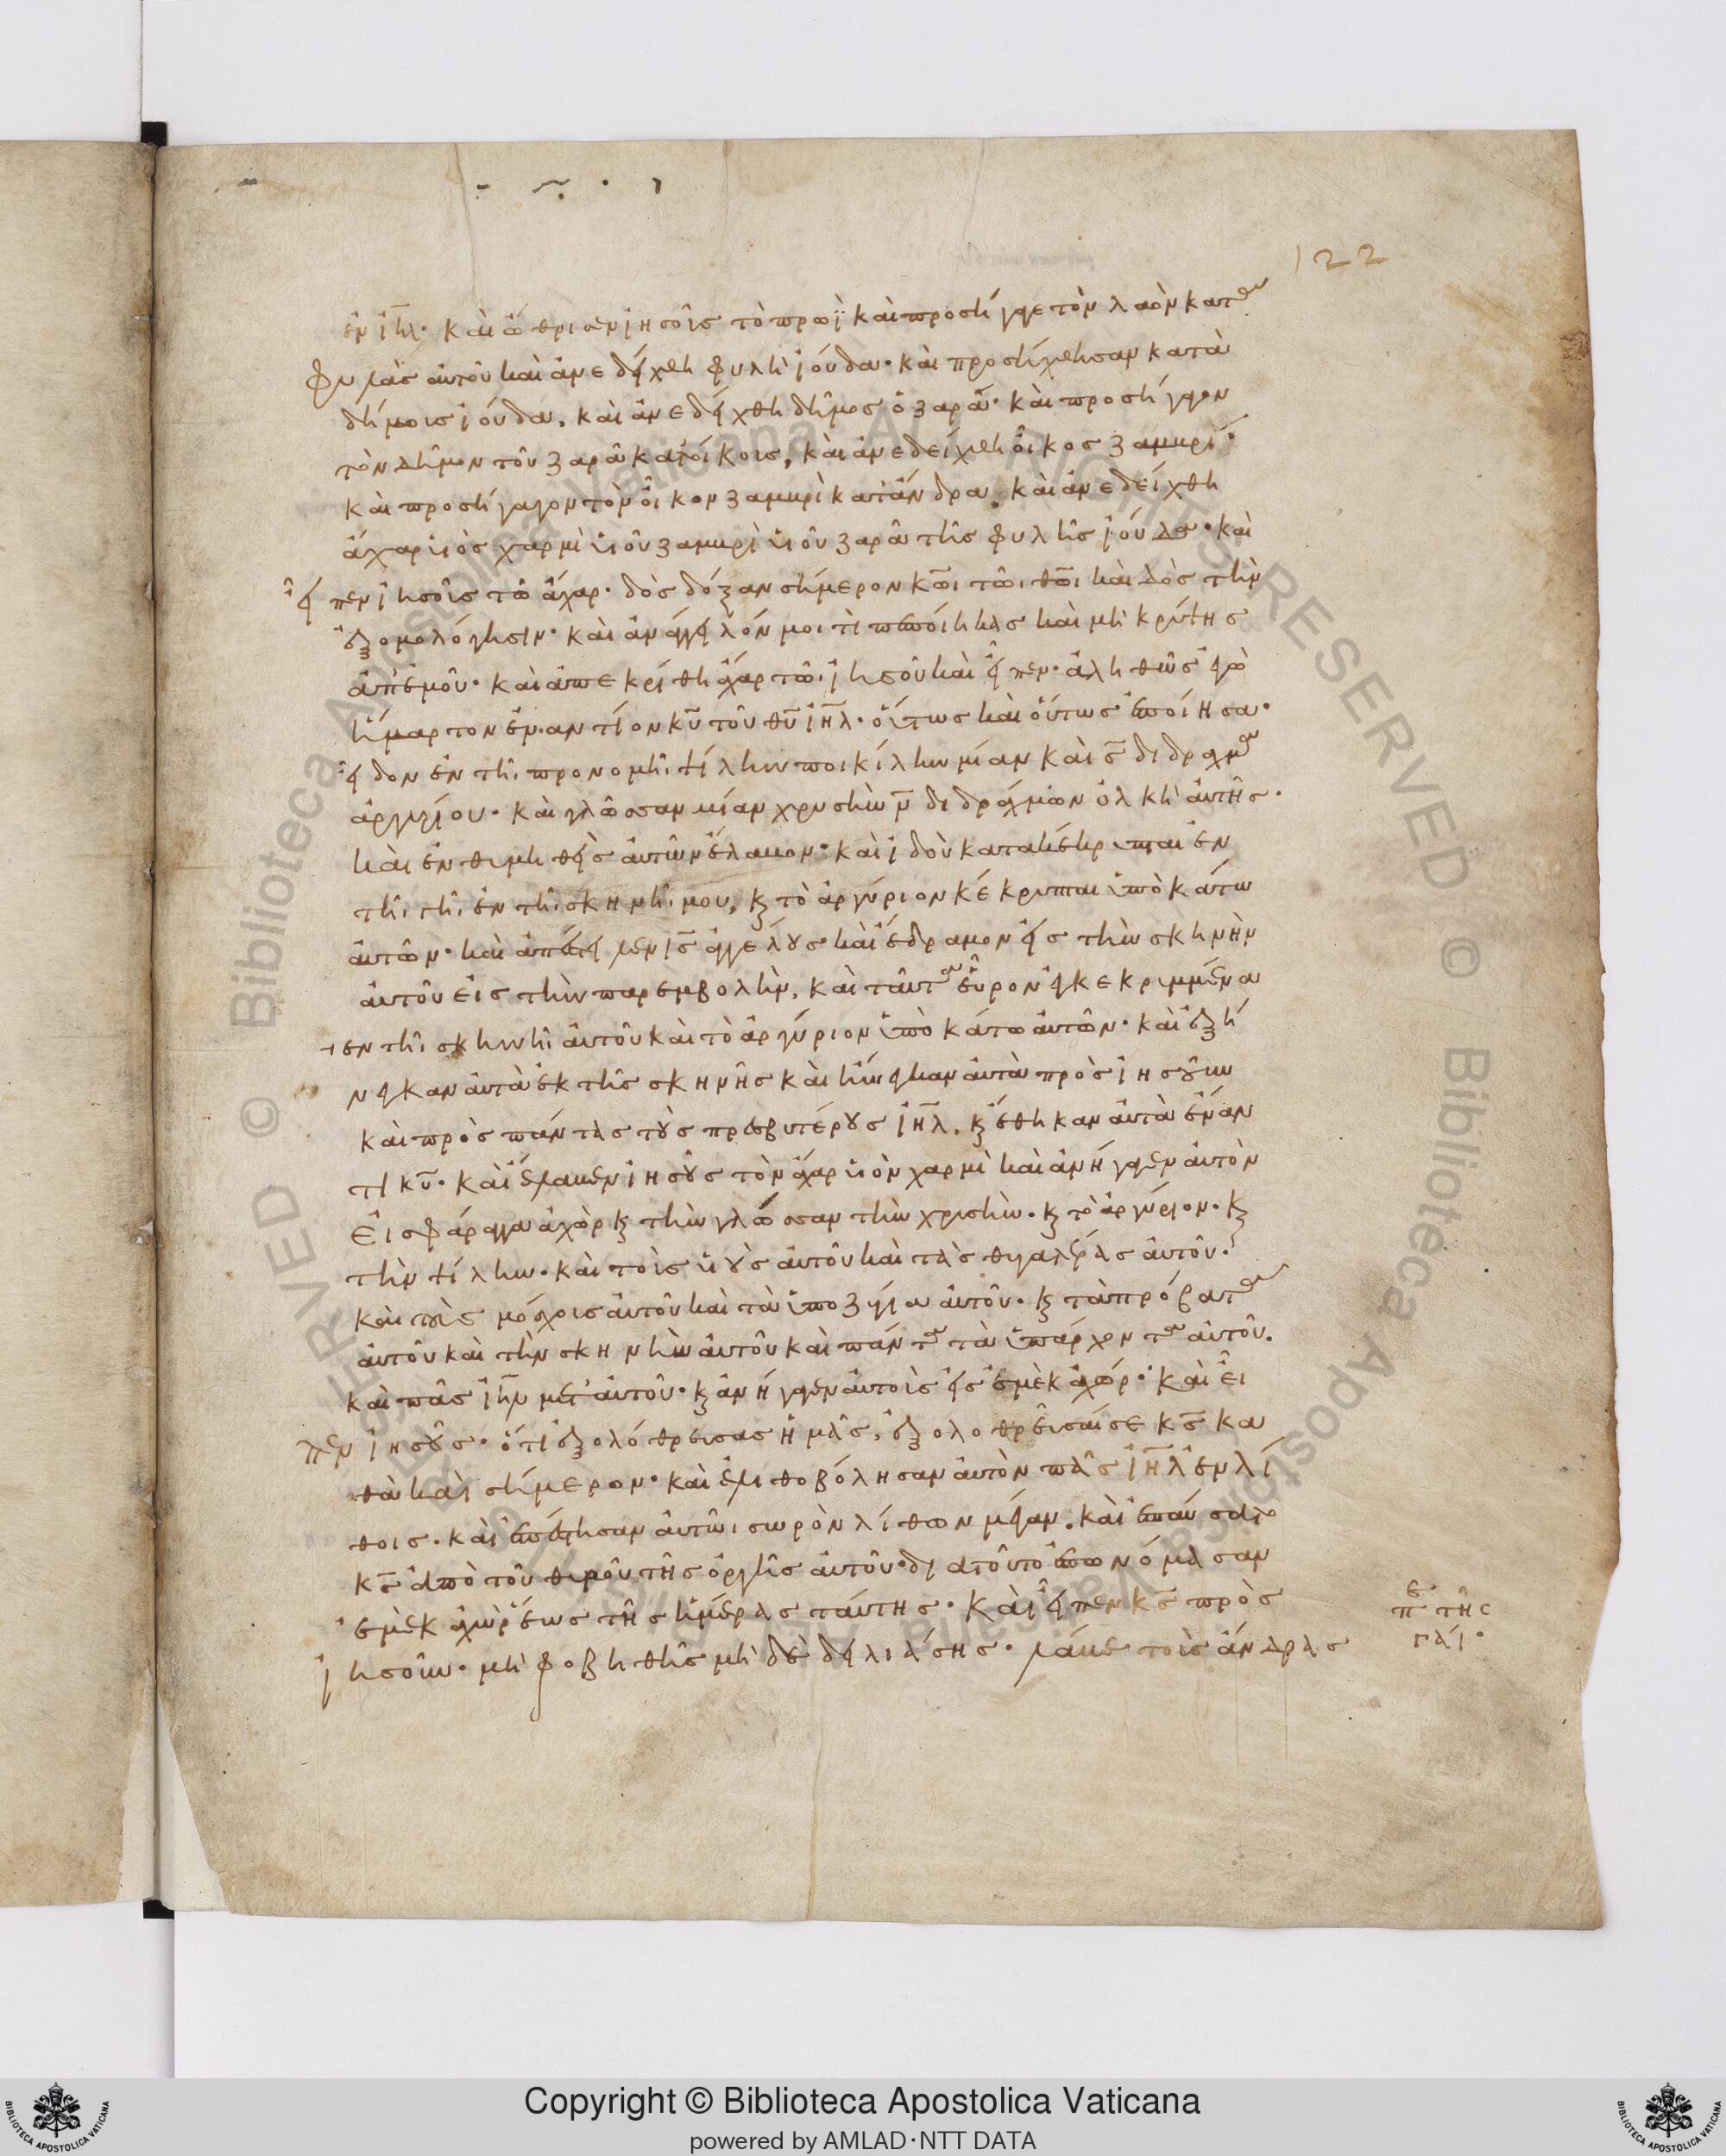 122
ἐν ἰηλ· καὶ ὤθρισεν ἰησοῦς τὸ πρωῒ καὶ προσήγαγε τὸν λαὸν κατὰ
φυλὰς αὐτοῦ καὶ ἀνεδείχθη φυλὴ ἰούδα· καὶ προσήχθησαν κατὰ
δήμους ἰούδα, καὶ ἀνεδείχθη δῆμος ὁ ζαρά· καὶ προσήγαγον
τὸν δῆμον τοῦ ζαρὰ κατ οἴκους, καὶ ἀνεδείχθη οἶκος ζαμβρί·
καὶ προσήγαγον τὸν οἶκον ζαμβρὶ κατ ἄνδρα, καὶ ἀνεδείχθη
ἄχαρ υἱὸς χαρμὶ υἱοῦ ζαμβρὶ υἱοῦ ζαρὰ τῆς φυλῆς ἰούδα· καὶ
εἶπεν ἰησοῦς τῶ ἄχαρ· δὸς δόξαν σήμερον κω̅ι τῶι θω̅ι καὶ δὸς τὴν
ἐξομολόγησιν· καὶ ἀνάγγειλόν μοι τί πεποίηκας καὶ μὴ κρύψης
ἀπ ἐμοῦ· καὶ ἀπεκρίθη ἄχαρ τῶι ἰησοῦ καὶ εἶπεν· ἀληθῶς ἐγὼ
ἥμαρτον ἐναντίον κυ̅ τοῦ θυ̅ ἰηλ· οὕτως καὶ οὕτως ἐποίησα·
εἶδον ἐν τῆι προνομῆι ψίλην ποικίλην μίαν καὶ σ̅ δίδραχμα
ἀργυρίου· καὶ γλῶσσαν μίαν χρυσὴν ν̅ διδράχμων ὁλκὴ αὐτῆς·
καὶ ἐνθυμηθεὶς αὐτῶν ἔλαβον· καὶ ἰδοὺ κατακέκρυπται ἐν
τῆι γῆι ἐν τῆι σκηνῆι μου, κ τὸ ἀργύριον κέκρυπται ὑποκάτω
αὐτῶν· καὶ ἀπέστειλεν ις̅ ἀγγέλους· καὶ ἔδραμον εἰς τὴν σκηνὴν
αὐτοῦ εἰς τὴν παρεμβολὴν, καὶ ταῦτα εὗρον ἐγκεκρυμμένα
ἐν τῆι σκηνῆι αὐτοῦ καὶ τὸ ἀργύριον ὑποκάτω αὐτῶν· καὶ ἐξή
νεγκαν αὐτὰ ἐκ τῆς σκηνῆς καὶ ἤνεγκαν αὐτὰ πρὸς ἰησοῦν
καὶ πρὸς πάντας τοὺς πρεσβυτέρους ἰηλ. κ ἔθηκαν αὐτὰ ἔναν
τι κυ̅· καὶ ἔλαβεν ἰησοῦς τὸν ἄχαρ υἱὸν χαρμὶ καὶ ἀνήγαγεν αὐτὸν
εἰς φάραγγα ἀχὼρ κ τὴν γλῶσσαν τὴν χρυσὴν· κ τὸ ἀργύριον· κ
τὴν ψίλην· καὶ τοὺς υἱοὺς αὐτοῦ καὶ τὰς θυγατέρας αὐτοῦ·
καὶ τοὺς μόσχους αὐτοῦ καὶ τὰ ὑποζύγια αὐτοῦ· κ τὰ πρόβατα
αὐτοῦ καὶ τὴν σκηνὴν αὐτοῦ καὶ πάντα τὰ ὑπάρχοντα αὐτοῦ.
καὶ πᾶς ἰηλ μετ αὐτοῦ· κ ἀνήγαγεν αὐτοὺς εἰς ἐμὲκ ἀχώρ· καὶ εἶ
πεν ἰησοῦς· ὅτι ἐξολόθρευσας ἡμᾶς, ἐξολοθρεύσαι σε κς̅ κα
θὰ καὶ σήμερον· καὶ ἐλιθοβόλησαν αὐτὸν πᾶς ἰηλ ἐν λί
θοις· καὶ ἐπέστησαν αὐτῶι σωρὸν λίθων μέγαν. καὶ ἐπαύσατο
κς̅ ἀπὸ τοῦ θυμοῦ τῆς ὀργῆς αὐτοῦ· διατοῦτο ἐπωνόμασαν
ἐμὲκ ἀχὼρ ἕως τῆς ἡμέρας ταύτης· καὶ εἶπεν κς̅ πρὸς
ἰησοῦν· μὴ φοβηθῆς μὴ δὲ δειλιάσης· λάβε τοὺς ἄνδρας
π τῆς
γαί·